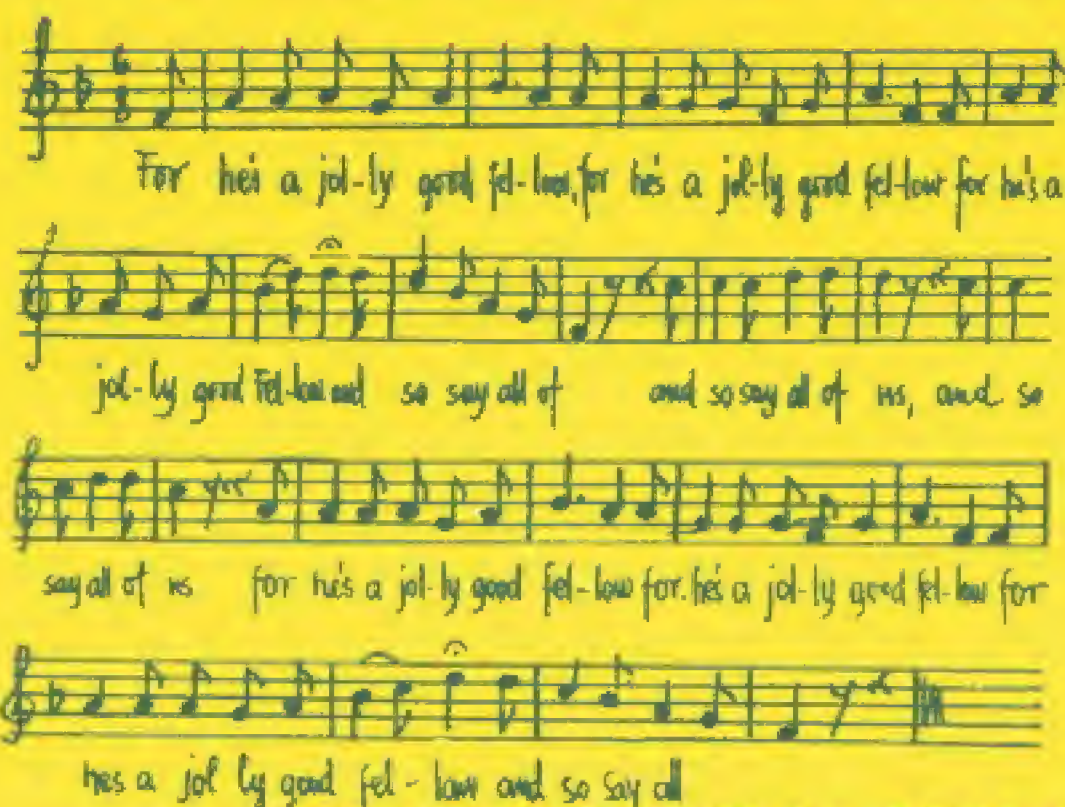 For he's a jol-ly good fel-low, for he's a jol-ly good fel-low for he's a
jol-ly good Fel-low and so say all of and so say all of us, and so
say all of us for he's a jol-ly good fel-low for he's a jol-ly good fel-low for
hes a jol ly good fel-low and so say all